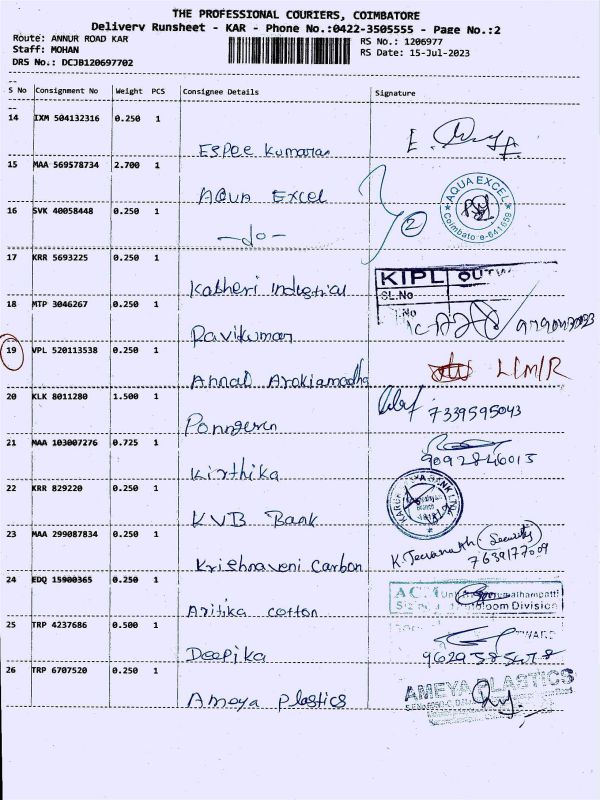 THE PROFESSIONAL COURIERS, COIMBATORE
Delivery Runsheet - KAR - Phone No.:0422-3505555 - Page No.:2
Route: ANNUR ROAD KAR
RS No.: 1206977
Staff: MOHAN
RS Date: 15-Jul-2023
DRS No.: DCJB120697702
S No Consignment No Weight PCS Consignee Details Signature
14 IXM 504132316 0.250 1
Espee Kumaran
15 MAA 569578734 2.700 1
AQUA EXCEL
AQUA EXCEL
16 SVK 40058448 0.250 1
-do-
2
17 KRR 5693225 0.250 1
Katheri Industrial
KIPL
SL.No
18 MTP 3046267 0.250 1
Ravikumar
19 VPL 520113538 0.250 1
Annal Arokiamadha
L/M/R
20 KLK 8011280 1.500 1
7339595043
21 MAA 103007276 0.725 1
Kirthika
9092840015
22 KRR 829220 0.250 1
KVB Bank
23 MAA 299087834 0.250 1
Krishnaveni Carbon
Security
7639177009
24 EDQ 15900365 0.250 1
Aritika cotton
Division
25 TRP 4237686 0.500 1
Deepika
26 TRP 6707520 0.250 1
Ameya Plastics
AMEYA PLASTICS